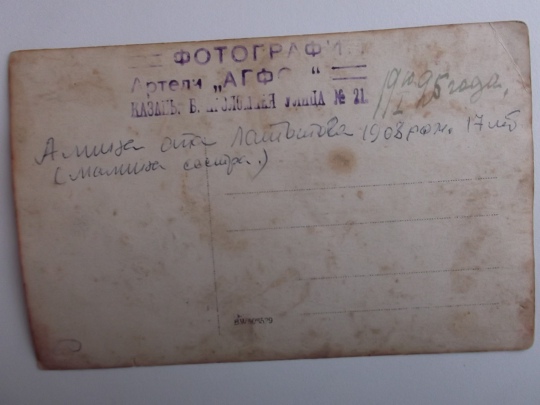 ФОТОГРАФИ
Артели „АГФО"
КАЗАНЬ, Б. УЛИЦА № 21.
1925 года.
Амина апа 1908 рож. 17 лет
(мамина сестра.)